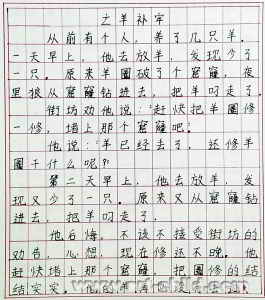 亡羊补牢
从前有个人,养了几只羊。
一天早上,他去放羊,发现少了
一只。原来羊圈破了个窟窿,夜
里狼从窟窿钻进去,把羊叼走了。
街坊劝他说:“赶快把羊圈修
一修,堵上那个窟窿吧!
他说:“羊已经丢了,还修羊
圈干什么呢?”
第二天早上,他去放羊,发
现又少了一只。原来又从窟窿钻
进去,把羊叼走了。
他后悔,不该不接受街坊的
劝告,心想,现在修还不晚。他
赶快堵上那个窟窿,把圈修的结
结实实。他的羊再